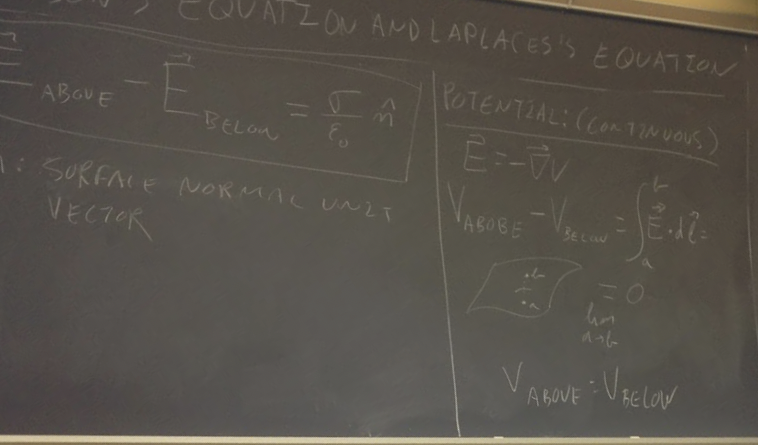 EQUATION AND LAPLACES'S EQUATION
E⃗ ABOVE - E⃗ BELOW = σ/ε₀ n̂
: SURFACE NORMAL UNIT
VECTOR
POTENTIAL: (CONTINUOUS)
E⃗ = -∇⃗V
V ABOBE - V BELOW = ∫ₐᵇ E⃗ · dl⃗ =
.b
.a
= 0
lim
a→b
V ABOVE = V BELOW